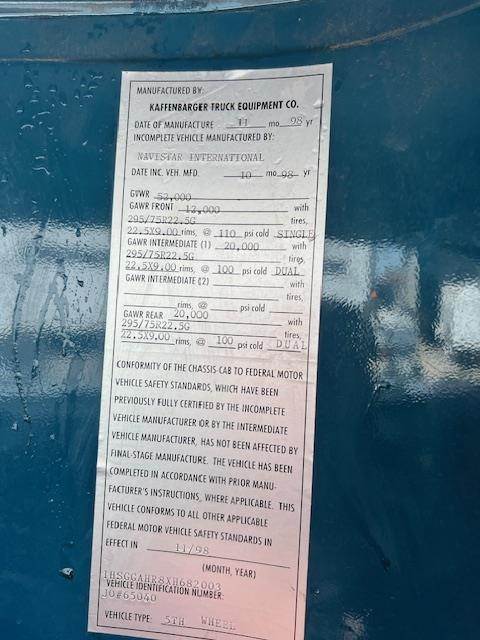 MANUFACTURED BY:
KAFFENBARGER TRUCK EQUIPMENT CO.
DATE OF MANUFACTURE 11 mo. 98 yr
INCOMPLETE VEHICLE MANUFACTURED BY:
NAVISTAR INTERNATIONAL
DATE INC. VEH. MFD. 10 mo. 98 yr
GVWR 52,000
GAWR FRONT 12,000 with
295/75R22.5G tires,
22.5X9.00 rims, @ 110 psi cold SINGLE
GAWR INTERMEDIATE (1) 20,000 with
295/75R22.5G tires,
22.5X9.00 rims, @ 100 psi cold DUAL
GAWR INTERMEDIATE (2) with
tires,
rims, @ psi cold
GAWR REAR 20,000 with
295/75R22.5G tires,
22.5X9.00 rims, @ 100 psi cold DUAL
CONFORMITY OF THE CHASSIS-CAB TO FEDERAL MOTOR
VEHICLE SAFETY STANDARDS, WHICH HAVE BEEN
PREVIOUSLY FULLY CERTIFIED BY THE INCOMPLETE
VEHICLE MANUFACTURER OR BY THE INTERMEDIATE
VEHICLE MANUFACTURER, HAS NOT BEEN AFFECTED BY
FINAL-STAGE MANUFACTURE. THE VEHICLE HAS BEEN
COMPLETED IN ACCORDANCE WITH PRIOR MANU-
FACTURER'S INSTRUCTIONS, WHERE APPLICABLE. THIS
VEHICLE CONFORMS TO ALL OTHER APPLICABLE
FEDERAL MOTOR VEHICLE SAFETY STANDARDS IN
EFFECT IN 11/98
(MONTH, YEAR)
1HSGGAHR8XH682003
VEHICLE IDENTIFICATION NUMBER:
JO#65040
VEHICLE TYPE: 5TH WHEEL